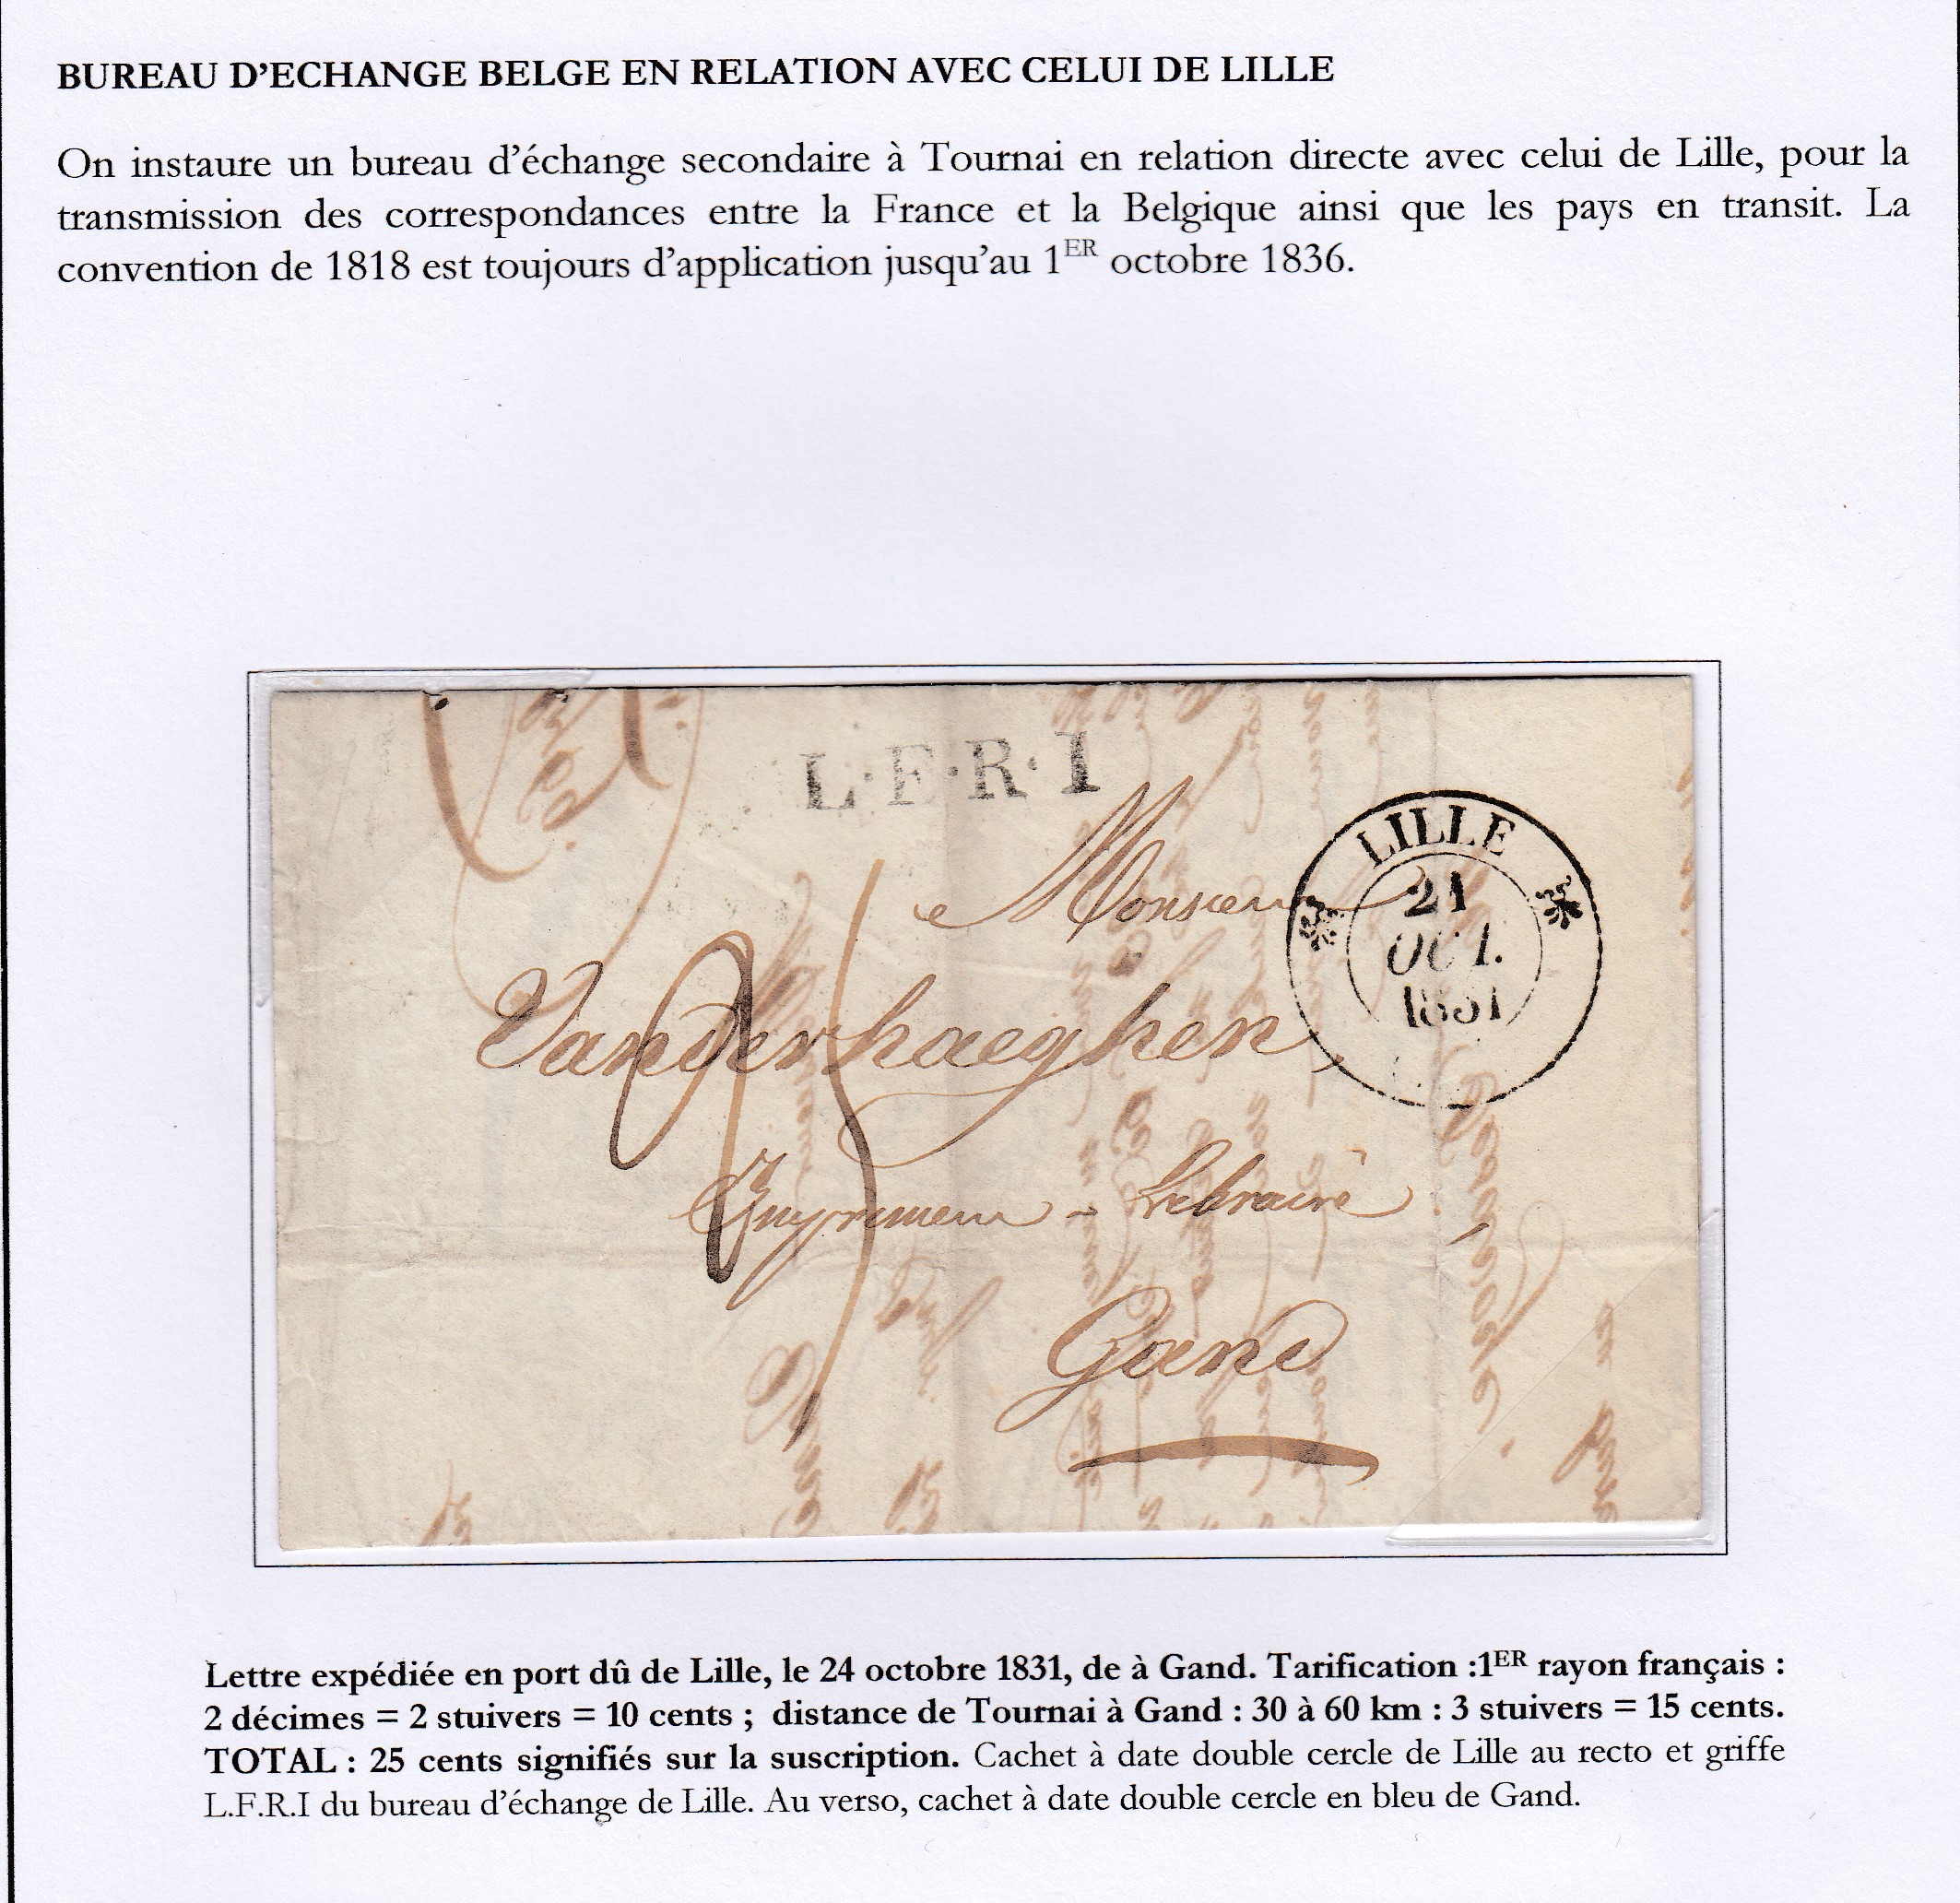 BUREAU D'ECHANGE BELGE EN RELATION AVEC CELUI DE LILLE
On instaure un bureau d'échange secondaire à Tournai en relation directe avec celui de Lille, pour la
transmission des correspondances entre la France et la Belgique ainsi que les pays en transit. La
convention de 1818 est toujours d'application jusqu'au 1ER octobre 1836.
L.F.R.I
LILLE
21
OCT.
1831
Monsieur
Vanderhaeghen
Imprimeur - Libraire
Gand
25
Lettre expédiée en port dû de Lille, le 24 octobre 1831, de à Gand. Tarification :1ER rayon français :
2 décimes = 2 stuivers = 10 cents ; distance de Tournai à Gand : 30 à 60 km : 3 stuivers = 15 cents.
TOTAL : 25 cents signifiés sur la suscription. Cachet à date double cercle de Lille au recto et griffe
L.F.R.I du bureau d'échange de Lille. Au verso, cachet à date double cercle en bleu de Gand.